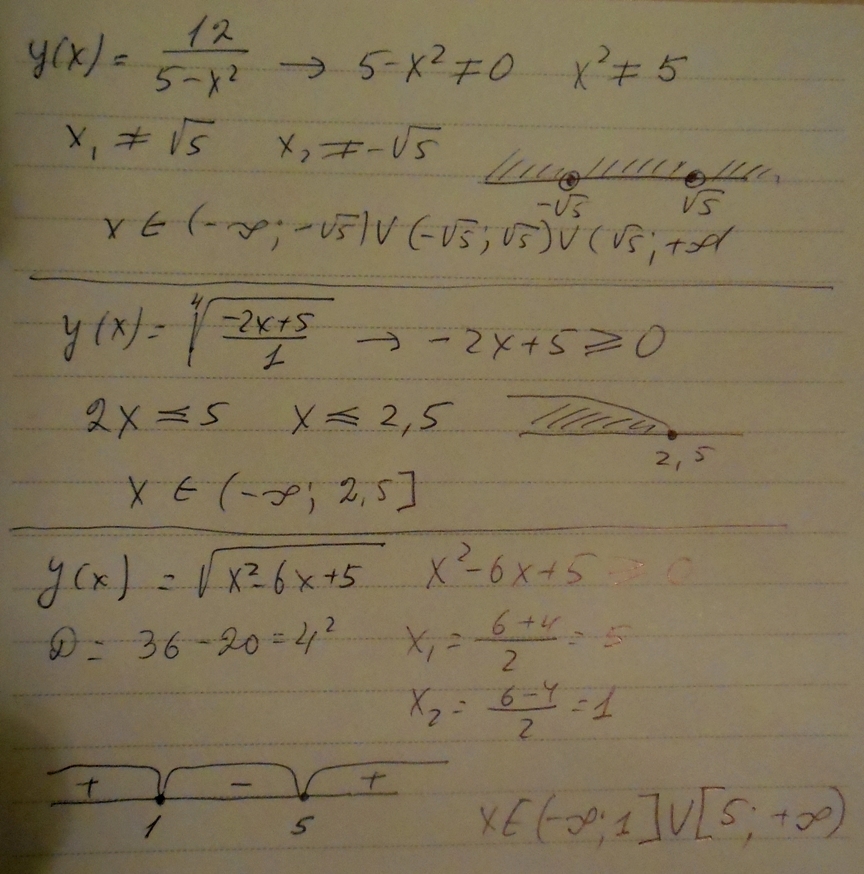 y(x) = 12/(5-x²) → 5-x² ≠ 0   x² ≠ 5
x₁ ≠ √5   x₂ ≠ -√5
-√5   √5
x ∈ (-∞; -√5) V (-√5; √5) V (√5; +∞
y(x) = ⁴√((-2x+5)/1) → -2x+5 ⩾ 0
2x ⩽ 5   x ⩽ 2,5
2,5
x ∈ (-∞; 2,5]
y(x) = √(x²-6x+5)   x²-6x+5 ⩾ 0
D = 36-20 = 4²   x₁ = (6+4)/2 = 5
x₂ = (6-4)/2 = 1
+ - +
1   5
x ∈ (-∞; 1] V [5; +∞)